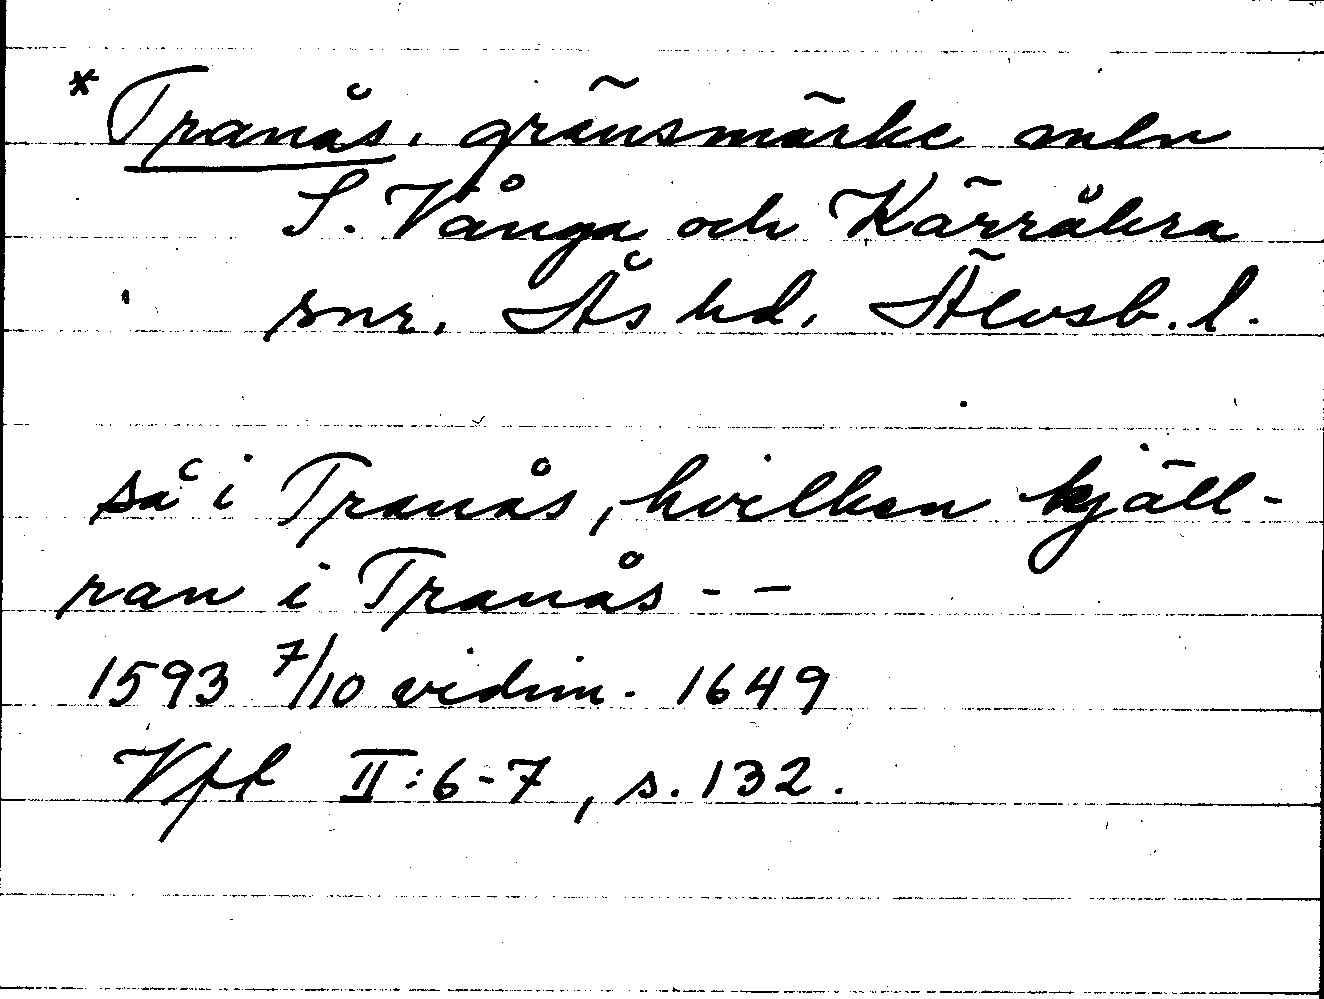 * Tranås, gränsmärke mln
S. Vånga och Kärråkra
snr, Ås hd, Älvsb. l.
så i Tranås, hvilken kjäll-
ran i Tranås - -
1593 7/10 vidim. 1649
Vft II:6-7, s. 132.